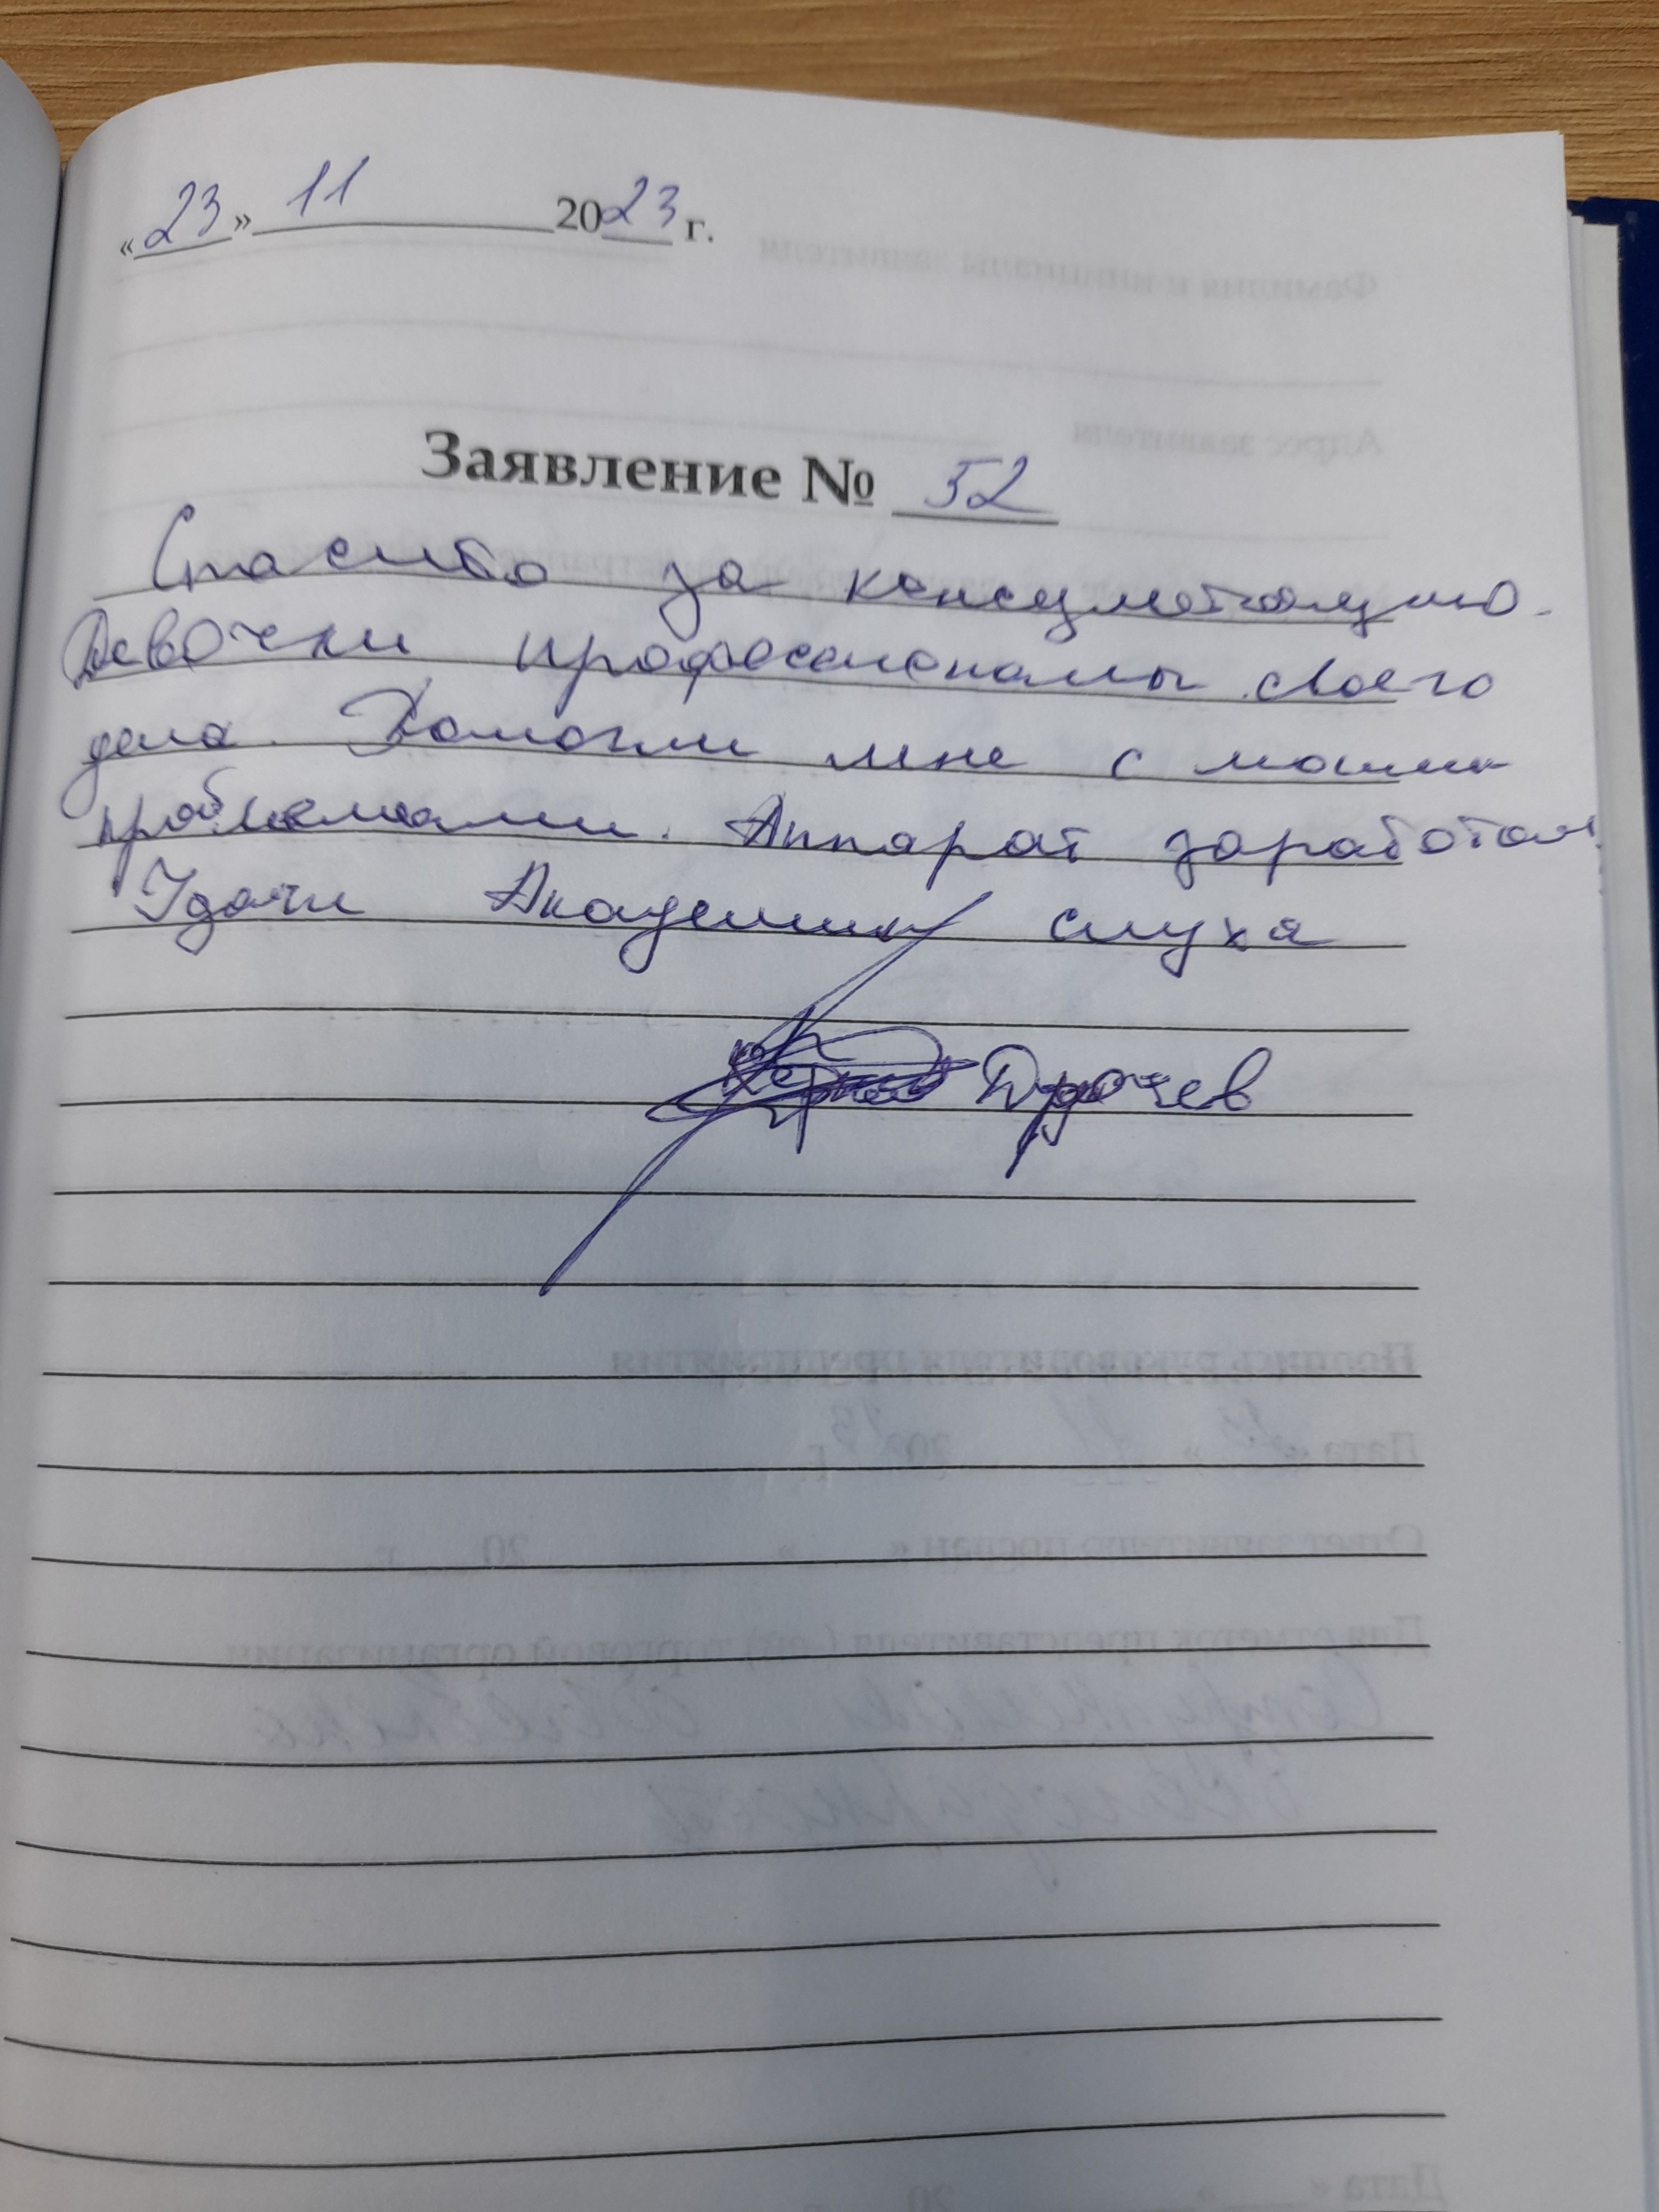 «23» 11 2023 г.
Заявление № 52
Спасибо за консультацию.
Девочки профессионалы своего
дела. Помогли мне с моими
проблемами. Аппарат заработал.
Удачи Академии слуха